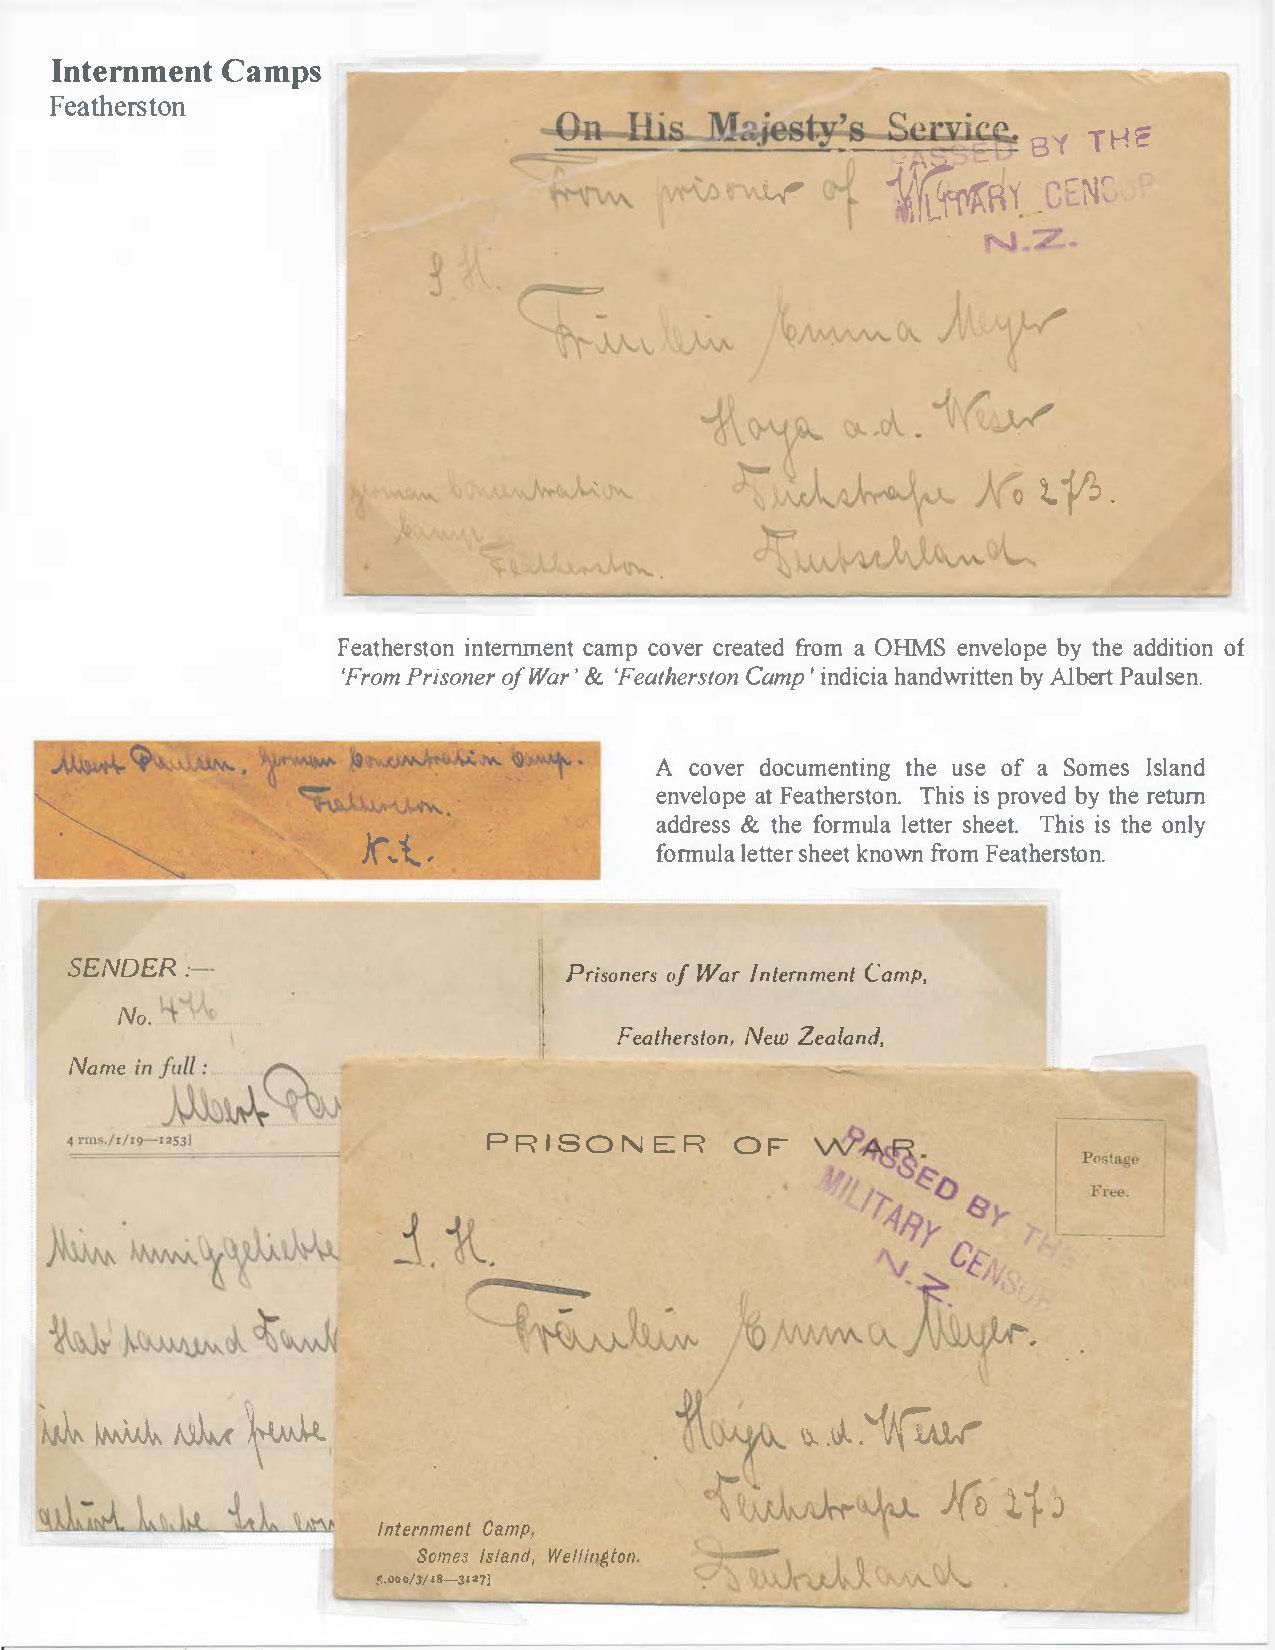 Internment Camps
Featherston
On His Majesty's Service.
PASSED BY THE
MILITARY CENSOR
N.Z.
From prisoner of War
S. H.
Fräulein Emma Meyer
Hoya a.d. Weser
Deichstraße No 273.
Deutschland
German Concentration
Camp
Featherston.
Featherston internment camp cover created from a OHMS envelope by the addition of
'From Prisoner of War' & 'Featherston Camp' indicia handwritten by Albert Paulsen.
Albert Paulsen, German Concentration Camp.
Featherston.
N.Z.
A cover documenting the use of a Somes Island
envelope at Featherston. This is proved by the return
address & the formula letter sheet. This is the only
formula letter sheet known from Featherston.
SENDER :—
No. 476
Name in full :
Albert Pau
4 rms./1/19—1253]
Prisoners of War Internment Camp,
Featherston, New Zealand,
Mein inniggeliebte
Hab' tausend Dank
ich mich sehr freute
gehört habe. Ich
PRISONER OF WAR.
PASSED BY THE
MILITARY CENSOR
N.Z.
Postage
Free.
S. H.
Fräulein Emma Meyer.
Hoya a.d. Weser
Deichstraße No 273
Deutschland
Internment Camp,
Somes Island, Wellington.
5,000/3/18—3427]